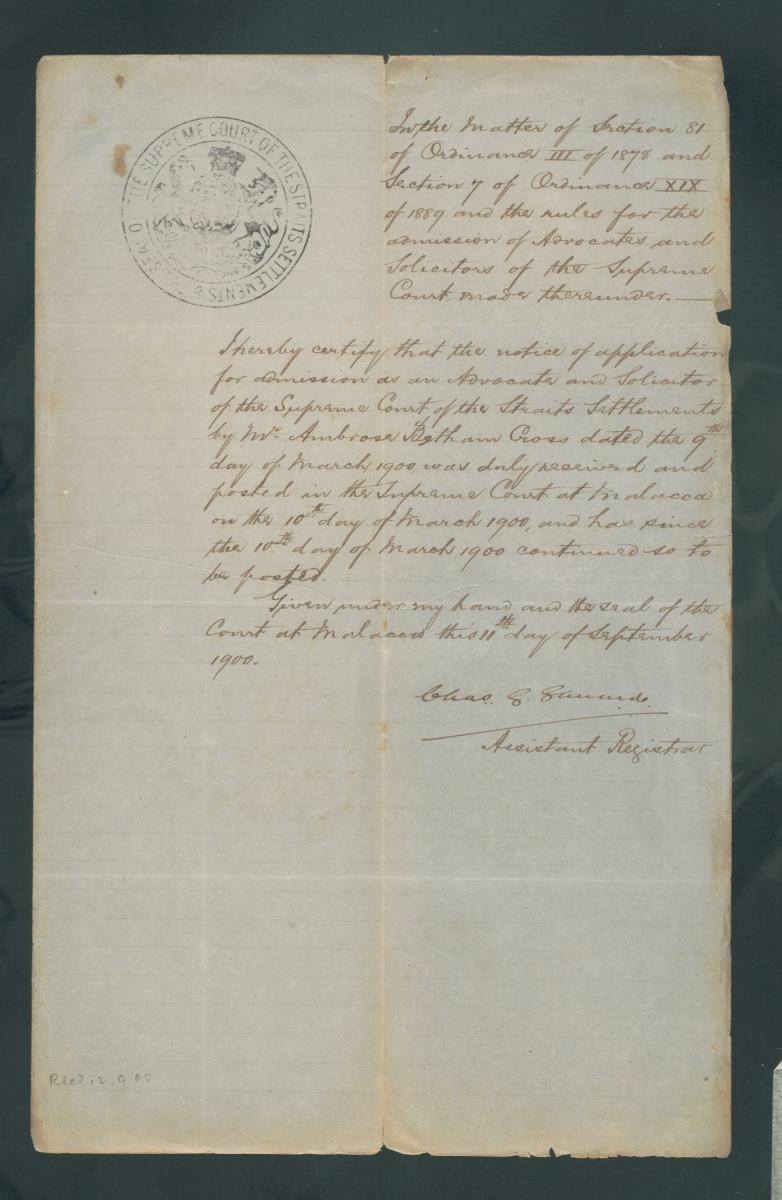 THE SEAL OF THE SUPREME COURT OF THE STRAITS SETTLEMENTS
In the Matter of Section 81
of Ordinance III of 1878 and
Section 7 of Ordinance XIX
of 1889 and the rules for the
admission of Advocates and
Solicitors of the Supreme
Court made thereunder.
I hereby certify that the notice of application
for admission as an Advocate and Solicitor
of the Supreme Court of the Straits Settlements
by Mr. Ambrose Betham Cross dated the 9th
day of March 1900, was duly received and
posted in the Supreme Court at Malacca
on the 10th day of March 1900, and has since
the 10th day of March 1900 continued so to
be posted.
Given under my hand and the seal of the
Court at Malacca this 11th day of September
1900.
Chas. G.
Assistant Registrar
Recd. 12.9.00